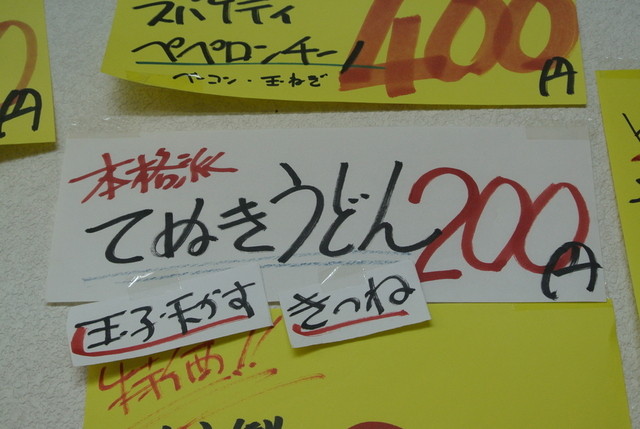 スパゲティ
ペペロンチーノ
400円
ベーコン・玉ねぎ
円
本格派
てぬきうどん200円
玉子・天かす
きつね
特価!!